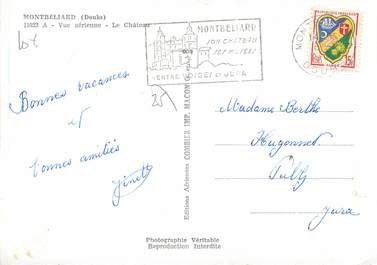 MONTBELIARD (Doubs)
11022 A - Vue aérienne - Le Château
lot
MONTBELIARD
SON CHATEAU
SES MUSÉES
ENTRE VOSGES ET JURA
15
DOUBS
Bonnes vacances
et
bonnes amitiés
Ginette
Editions Aériennes COMBIER IMP. MACON
Madame Berthe
Hugonnet
Pully
Jura
Photographie Véritable
Reproduction Interdite